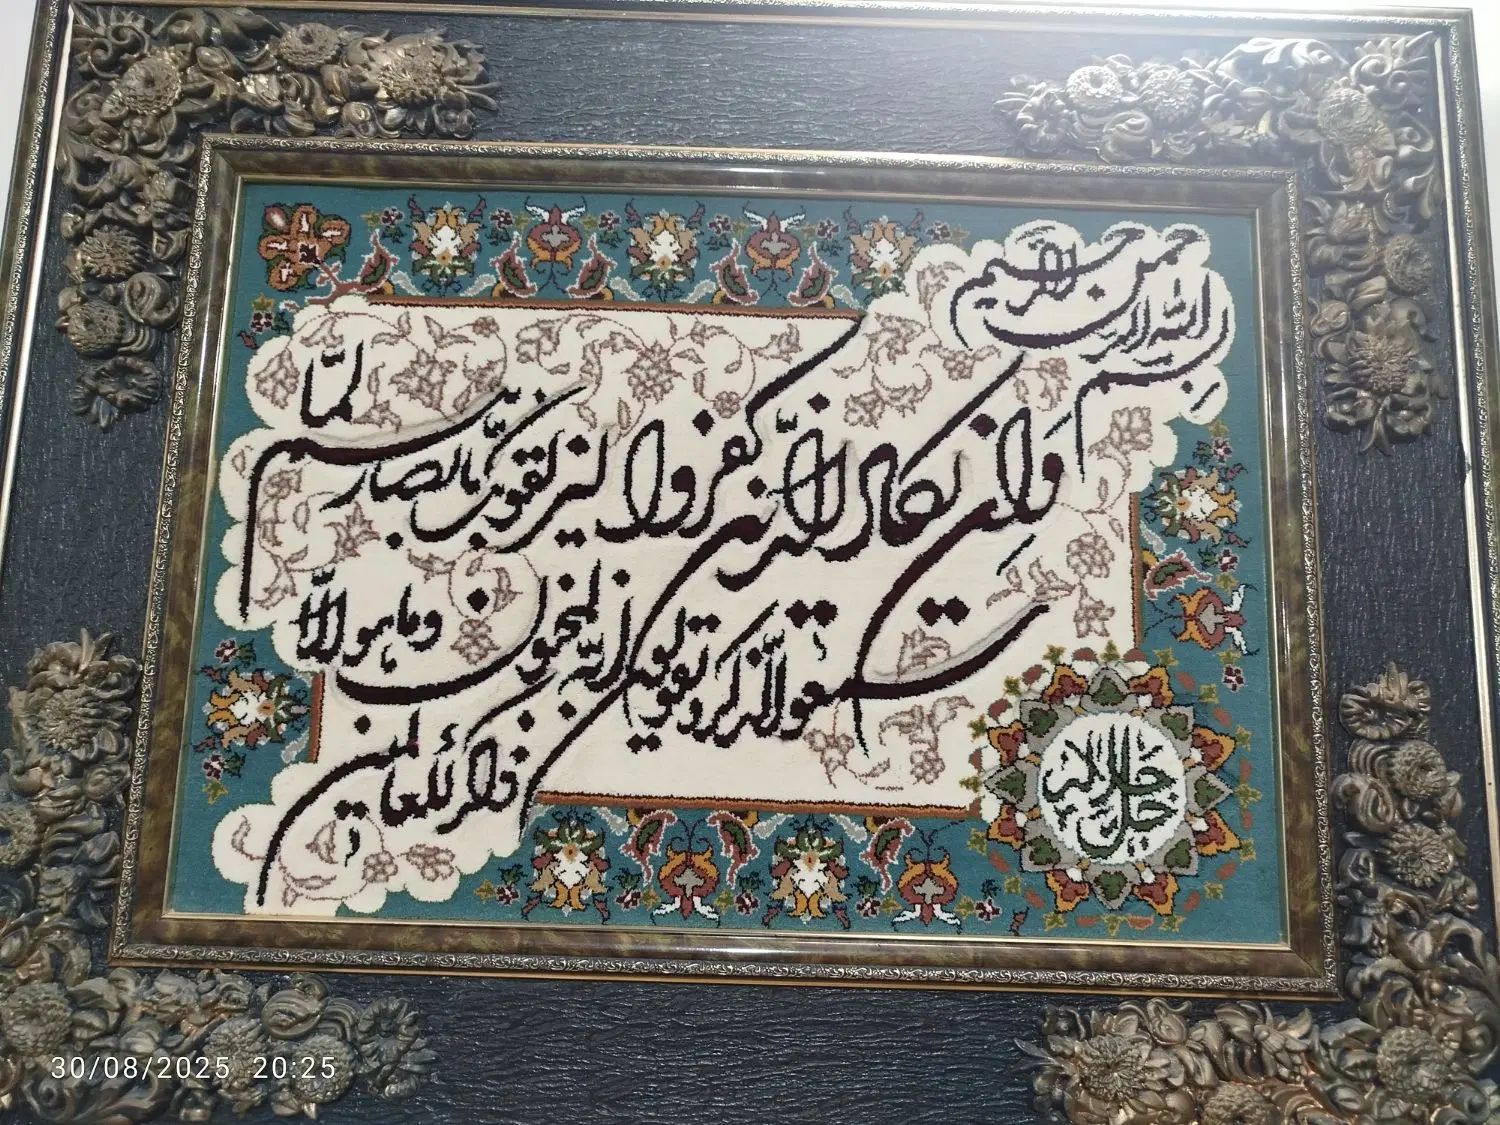 بسم الله الرحمن الرحیم
وَان یکاد الّذین کفروا لیزلقونک بابصارهم لمّا
سمعوا الذّکر و یقولون انّه لمجنون وما هو الّا
ذکر للعالمین
جل جلاله
30/08/2025 20:25